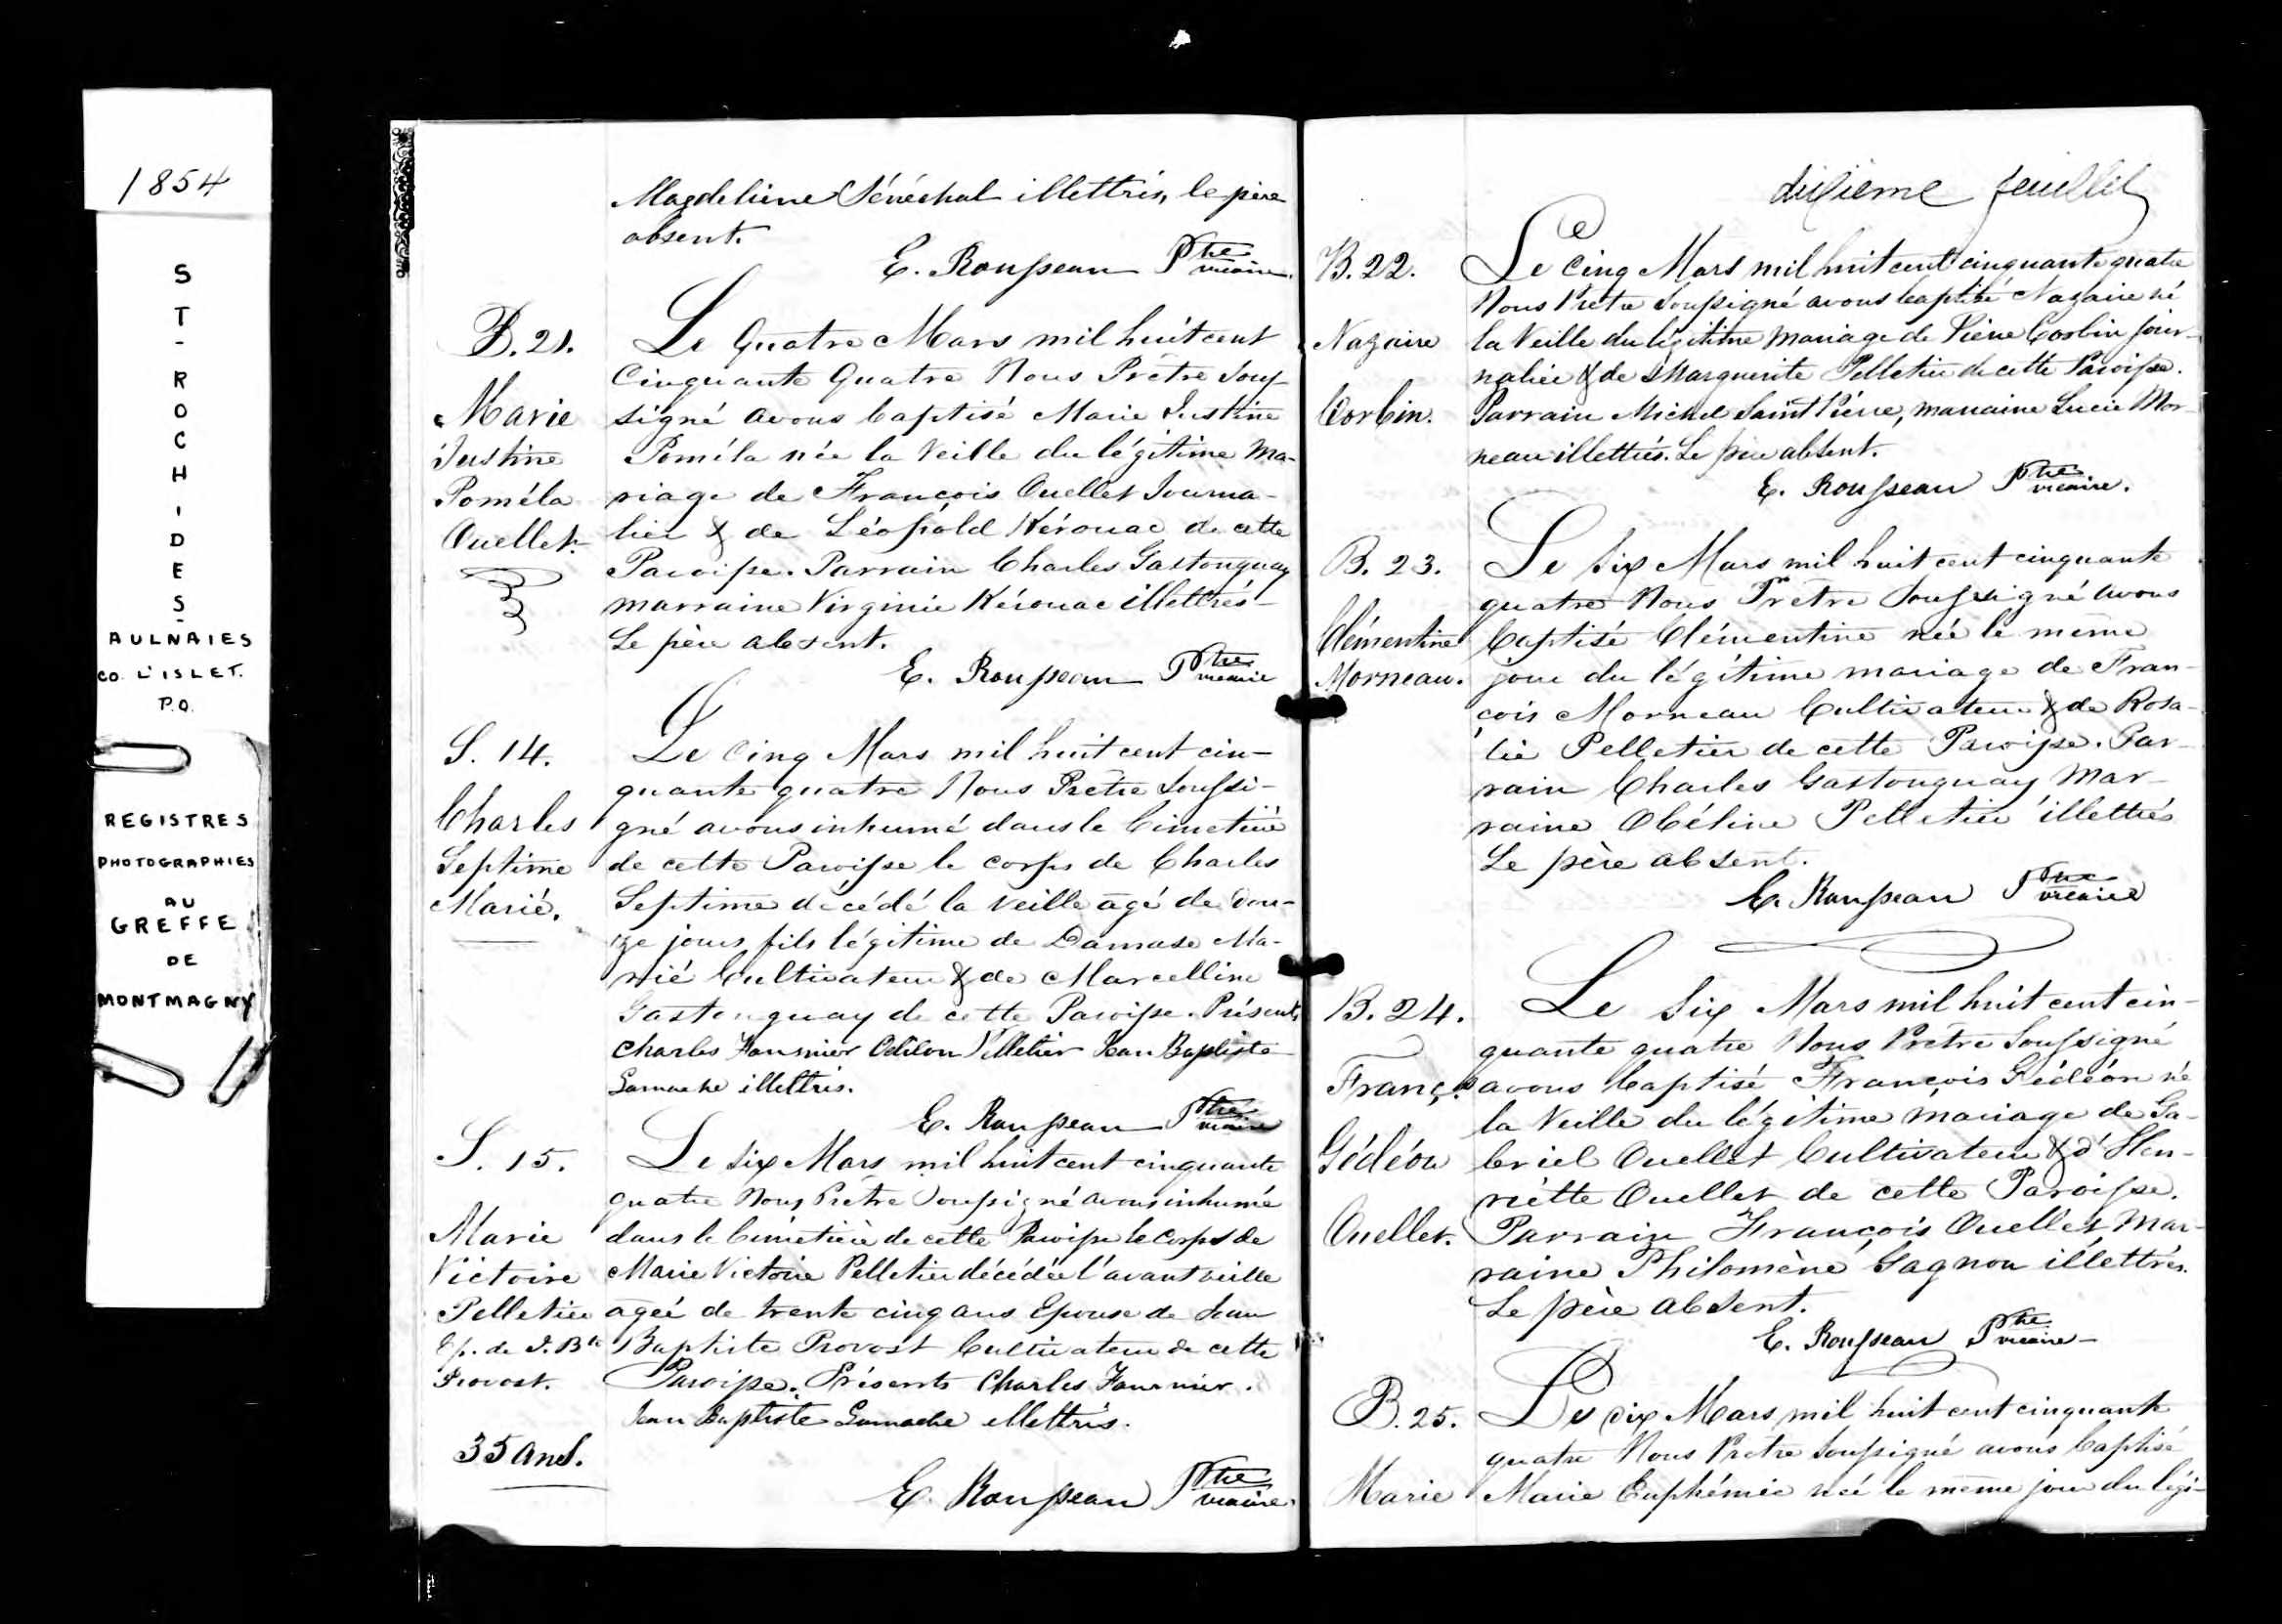 1854
ST-ROCH-DES-
AULNAIES
CO. L'ISLET.
P.Q.
REGISTRES
PHOTOGRAPHIES
AU
GREFFE
DE
MONTMAGNY
Magdeleine Sénéchal illettrés, le père
absent.
E. Rousseau Ptre vicaire.
B. 21.
Marie
Justine
Poméla
Ouellet.
Le Quatre Mars mil huit cent
Cinquante Quatre Nous Prêtre Sous-
signé avons baptisé Marie Justine
Poméla née la veille du légitime ma-
riage de François Ouellet Journa-
lier & de Léopold Kérouac de cette
Paroisse. Parrain Charles Gastonguay
marraine Virginie Kérouac illettrés
Le père absent.
E. Rousseau Ptre vicaire
S. 14.
Charles
Septime
Marié.
Le Cinq Mars mil huit cent cin-
quante quatre Nous Prêtre Soussi-
gné avons inhumé dans le Cimetière
de cette Paroisse le corps de Charles
Septime décédé la veille agé de dou-
ze jours fils légitime de Damase Ma-
rié Cultivateur & de Marcelline
Gastonguay de cette Paroisse. Présents
Charles Fournier Odilon Pelletier Jean Baptiste
Gamache illettrés.
E. Rousseau Ptre vicaire
S. 15.
Marie
Victoire
Pelletier
Ep. de J. Bte
Provost.
35 ans.
Le six Mars mil huit cent cinquante
quatre Nous Prêtre Soussigné avons inhumé
dans le Cimetière de cette Paroisse le corps de
Marie Victoire Pelletier décédée l'avant veille
agée de trente cinq ans Epouse de Jean
Baptiste Provost Cultivateur de cette
Paroisse. Présents Charles Fournier.
Jean Baptiste Gamache illettrés.
E. Rousseau Ptre vicaire.
dixième feuillet
B. 22.
Nazaire
Corbin.
Le Cinq Mars mil huit cent cinquante quatre
Nous Prêtre Soussigné avons baptisé Nazaire né
la Veille du légitime mariage de Pierre Corbin jour-
nalier & de Marguerite Pelletier de cette Paroisse.
Parrain Michel Saint Pierre, marraine Lucie Mor-
neau illettrés. Le père absent.
E. Rousseau Ptre vicaire.
B. 23.
Clémentine
Morneau.
Le Six Mars mil huit cent cinquante
quatre Nous Prêtre Soussigné avons
baptisé Clémentine née le même
jour du légitime mariage de Fran-
çois Morneau Cultivateur & de Rosa-
lie Pelletier de cette Paroisse. Par-
rain Charles Gastonguay Mar-
raine Obéline Pelletier illettrés
Le père absent.
E. Rousseau Ptre vicaire
B. 24.
Franç.s
Gédéon
Ouellet.
Le Six Mars mil huit cent cin-
quante quatre Nous Prêtre Soussigné
avons baptisé François Gédéon né
la Veille du légitime mariage de Ga-
briel Ouellet Cultivateur & d'Hen-
riette Ouellet de cette Paroisse.
Parrain François Ouellet, Mar-
raine Philomène Gagnon illettrés.
Le père absent.
E. Rousseau Ptre vicaire
B. 25.
Marie
Le dix Mars mil huit cent cinquante
quatre Nous Prêtre Soussigné avons baptisé
Marie Euphémie née le même jour du légi-